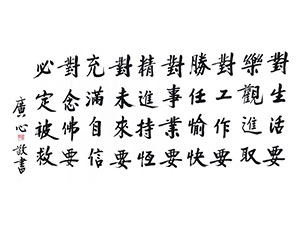 對生活要
樂觀進取
對工作要
勝任愉快
對事業要
精進持恆
對未來要
充滿自信
對念佛要
必定被救
廣心敬書